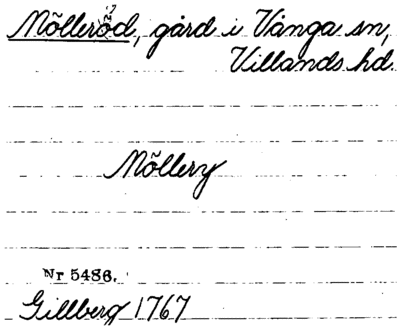 Mölleröd, gård i Vånga sn,
Villands hd.
Möllery
Nr 5486.
Gillberg 1767